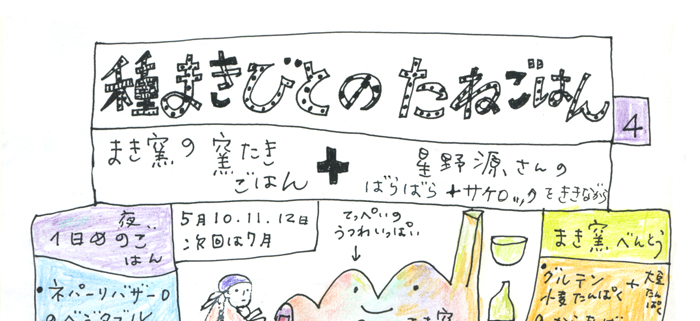 種まきびとの たねごはん
4
まき窯の 窯たき
ごはん
+
星野源さんの
ばらばら + サケロックをききながら
夜
1日めのご
はん
5月10.11.12日
次回は7月
てっぺいの
うつわいっぱい
まき窯べんとう
・ネパーリバザーロ
のベジタブル
・グルテン
小麦たんぱく
+ 大豆
たんぱく